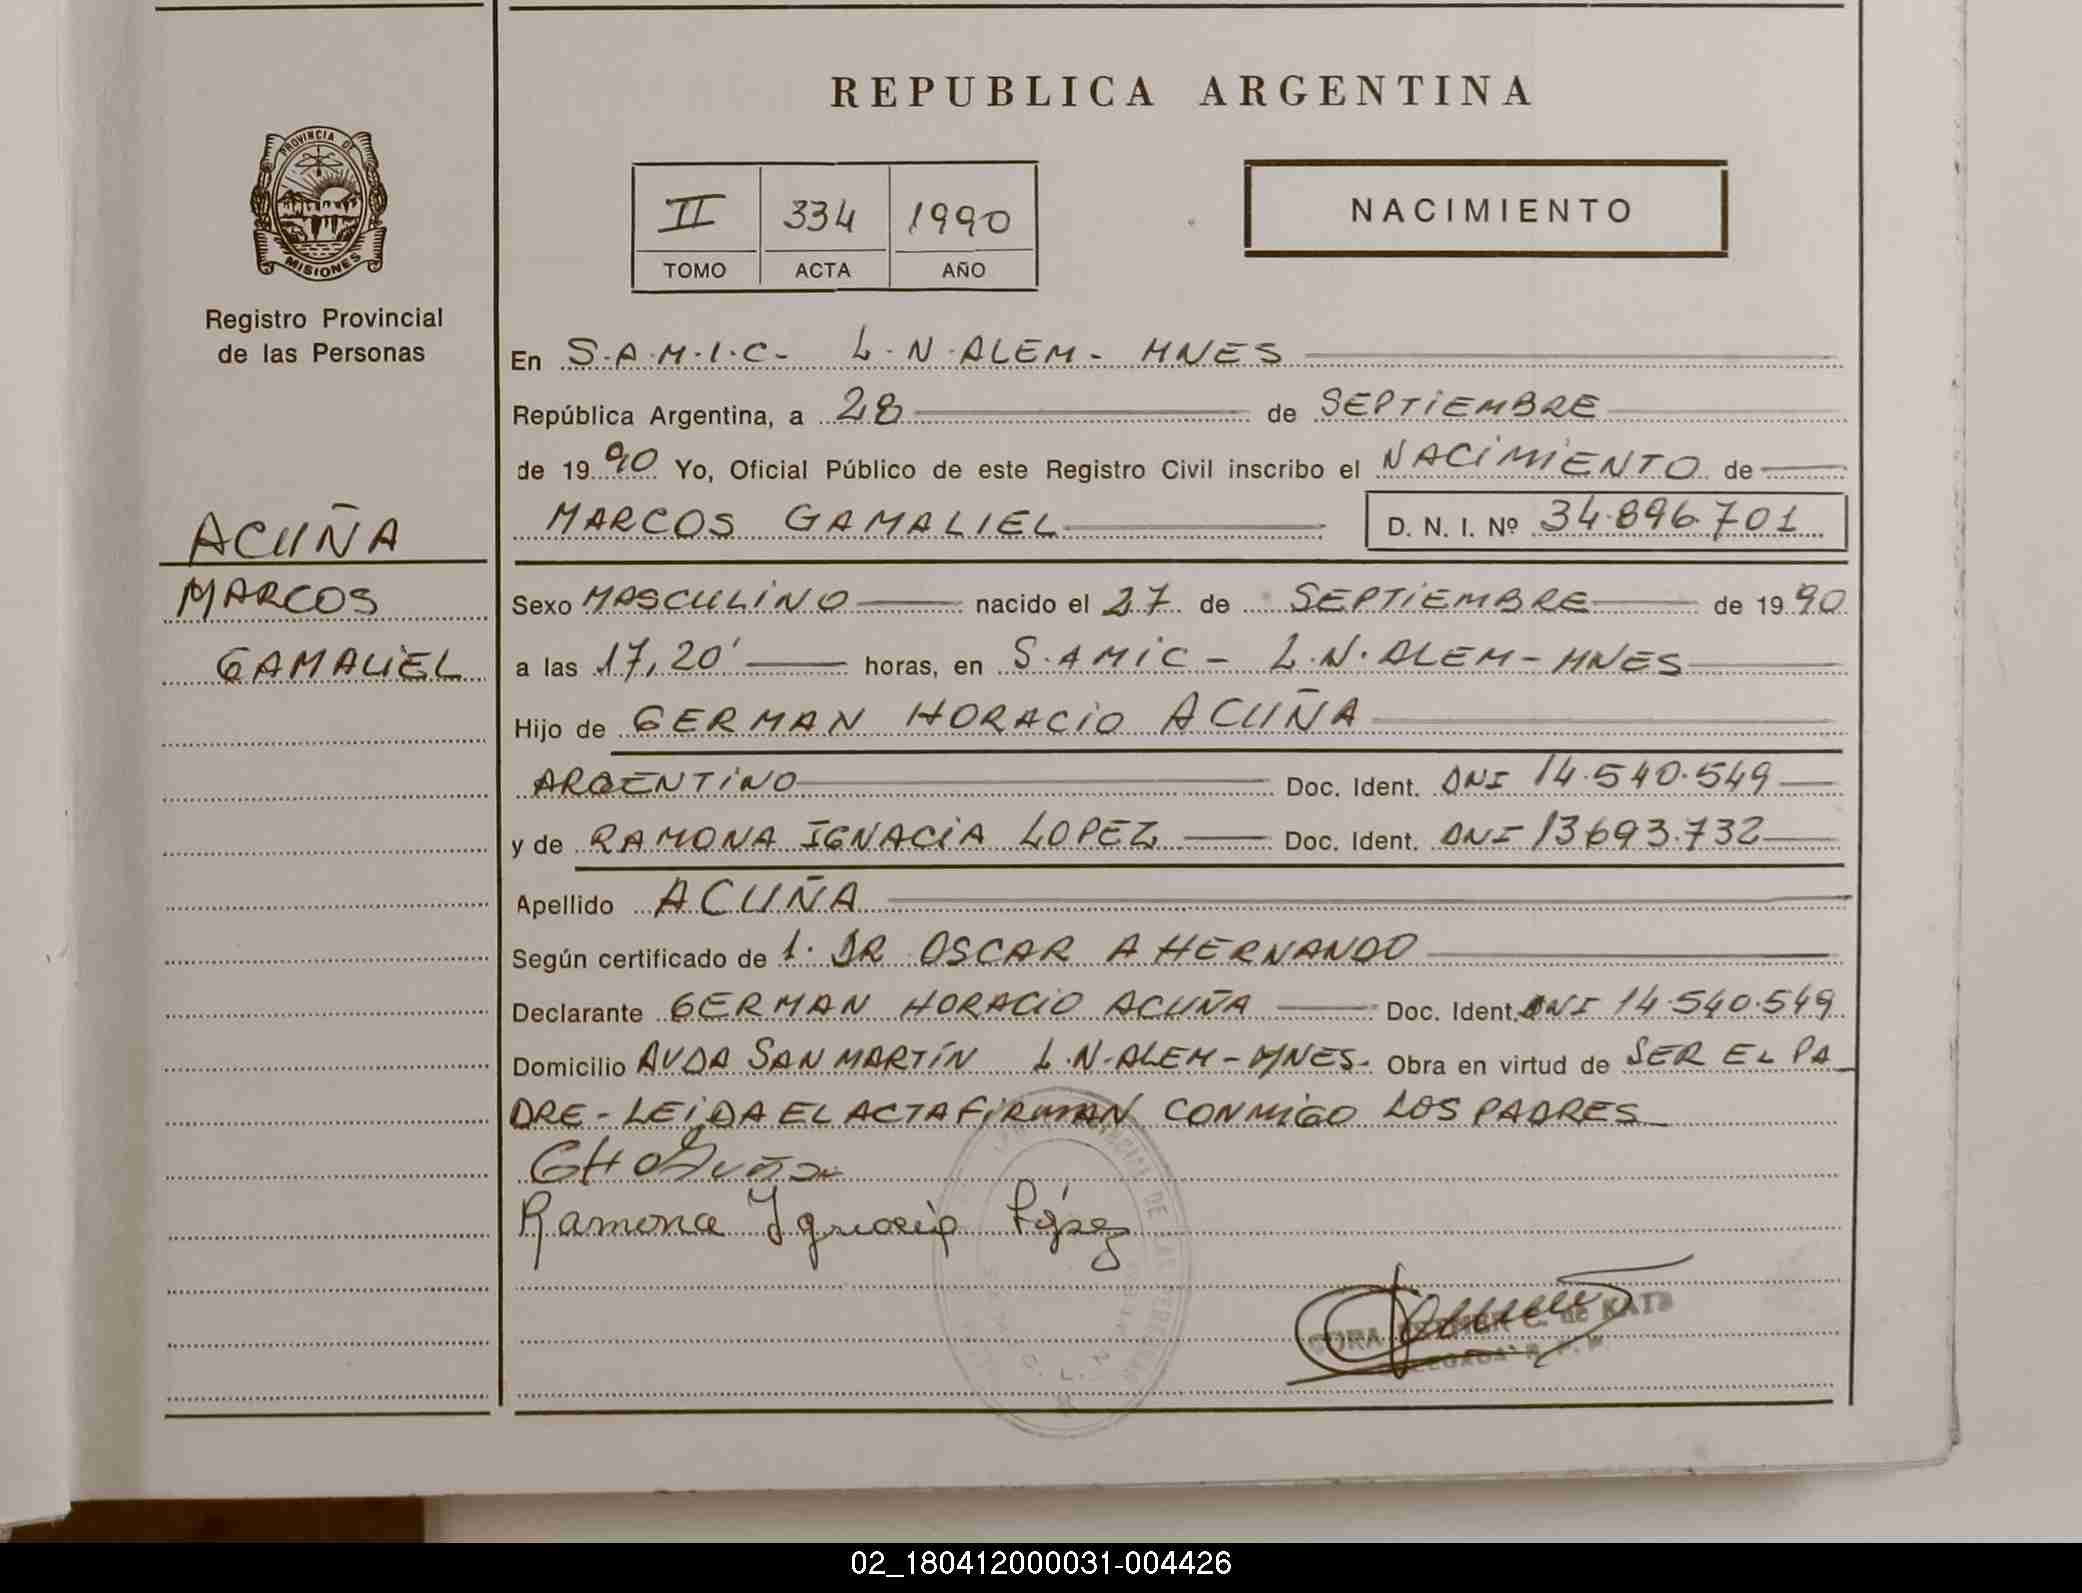 REPUBLICA ARGENTINA
PROVINCIA DE
MISIONES
Registro Provincial
de las Personas
II 334 1990
TOMO ACTA AÑO
NACIMIENTO
ACUÑA
MARCOS
GAMALIEL
En S.A.M.I.C- L.N.ALEM- MNES
República Argentina, a 28 de SEPTIEMBRE
de 1990 Yo, Oficial Público de este Registro Civil inscribo el NACIMIENTO de
MARCOS GAMALIEL D. N. I. Nº 34.896.701
Sexo MASCULINO nacido el 27 de SEPTIEMBRE de 1990
a las 17,20' horas, en S.AMIC- L.N.ALEM-MNES
Hijo de GERMAN HORACIO ACUÑA
ARGENTINO Doc. Ident. DNI 14.540.549
y de RAMONA IGNACIA LOPEZ Doc. Ident. DNI 13693.732
Apellido ACUÑA
Según certificado de 1. DR OSCAR A HERNANDO
Declarante GERMAN HORACIO ACUÑA Doc. Ident. DNI 14.540.549
Domicilio AVDA SAN MARTÍN L.N.ALEM-MNES. Obra en virtud de SER EL PA
DRE-LEIDA EL ACTA FIRMAN CONMIGO LOS PADRES
Ramona Ignacia López
de KATZ
02_180412000031-004426